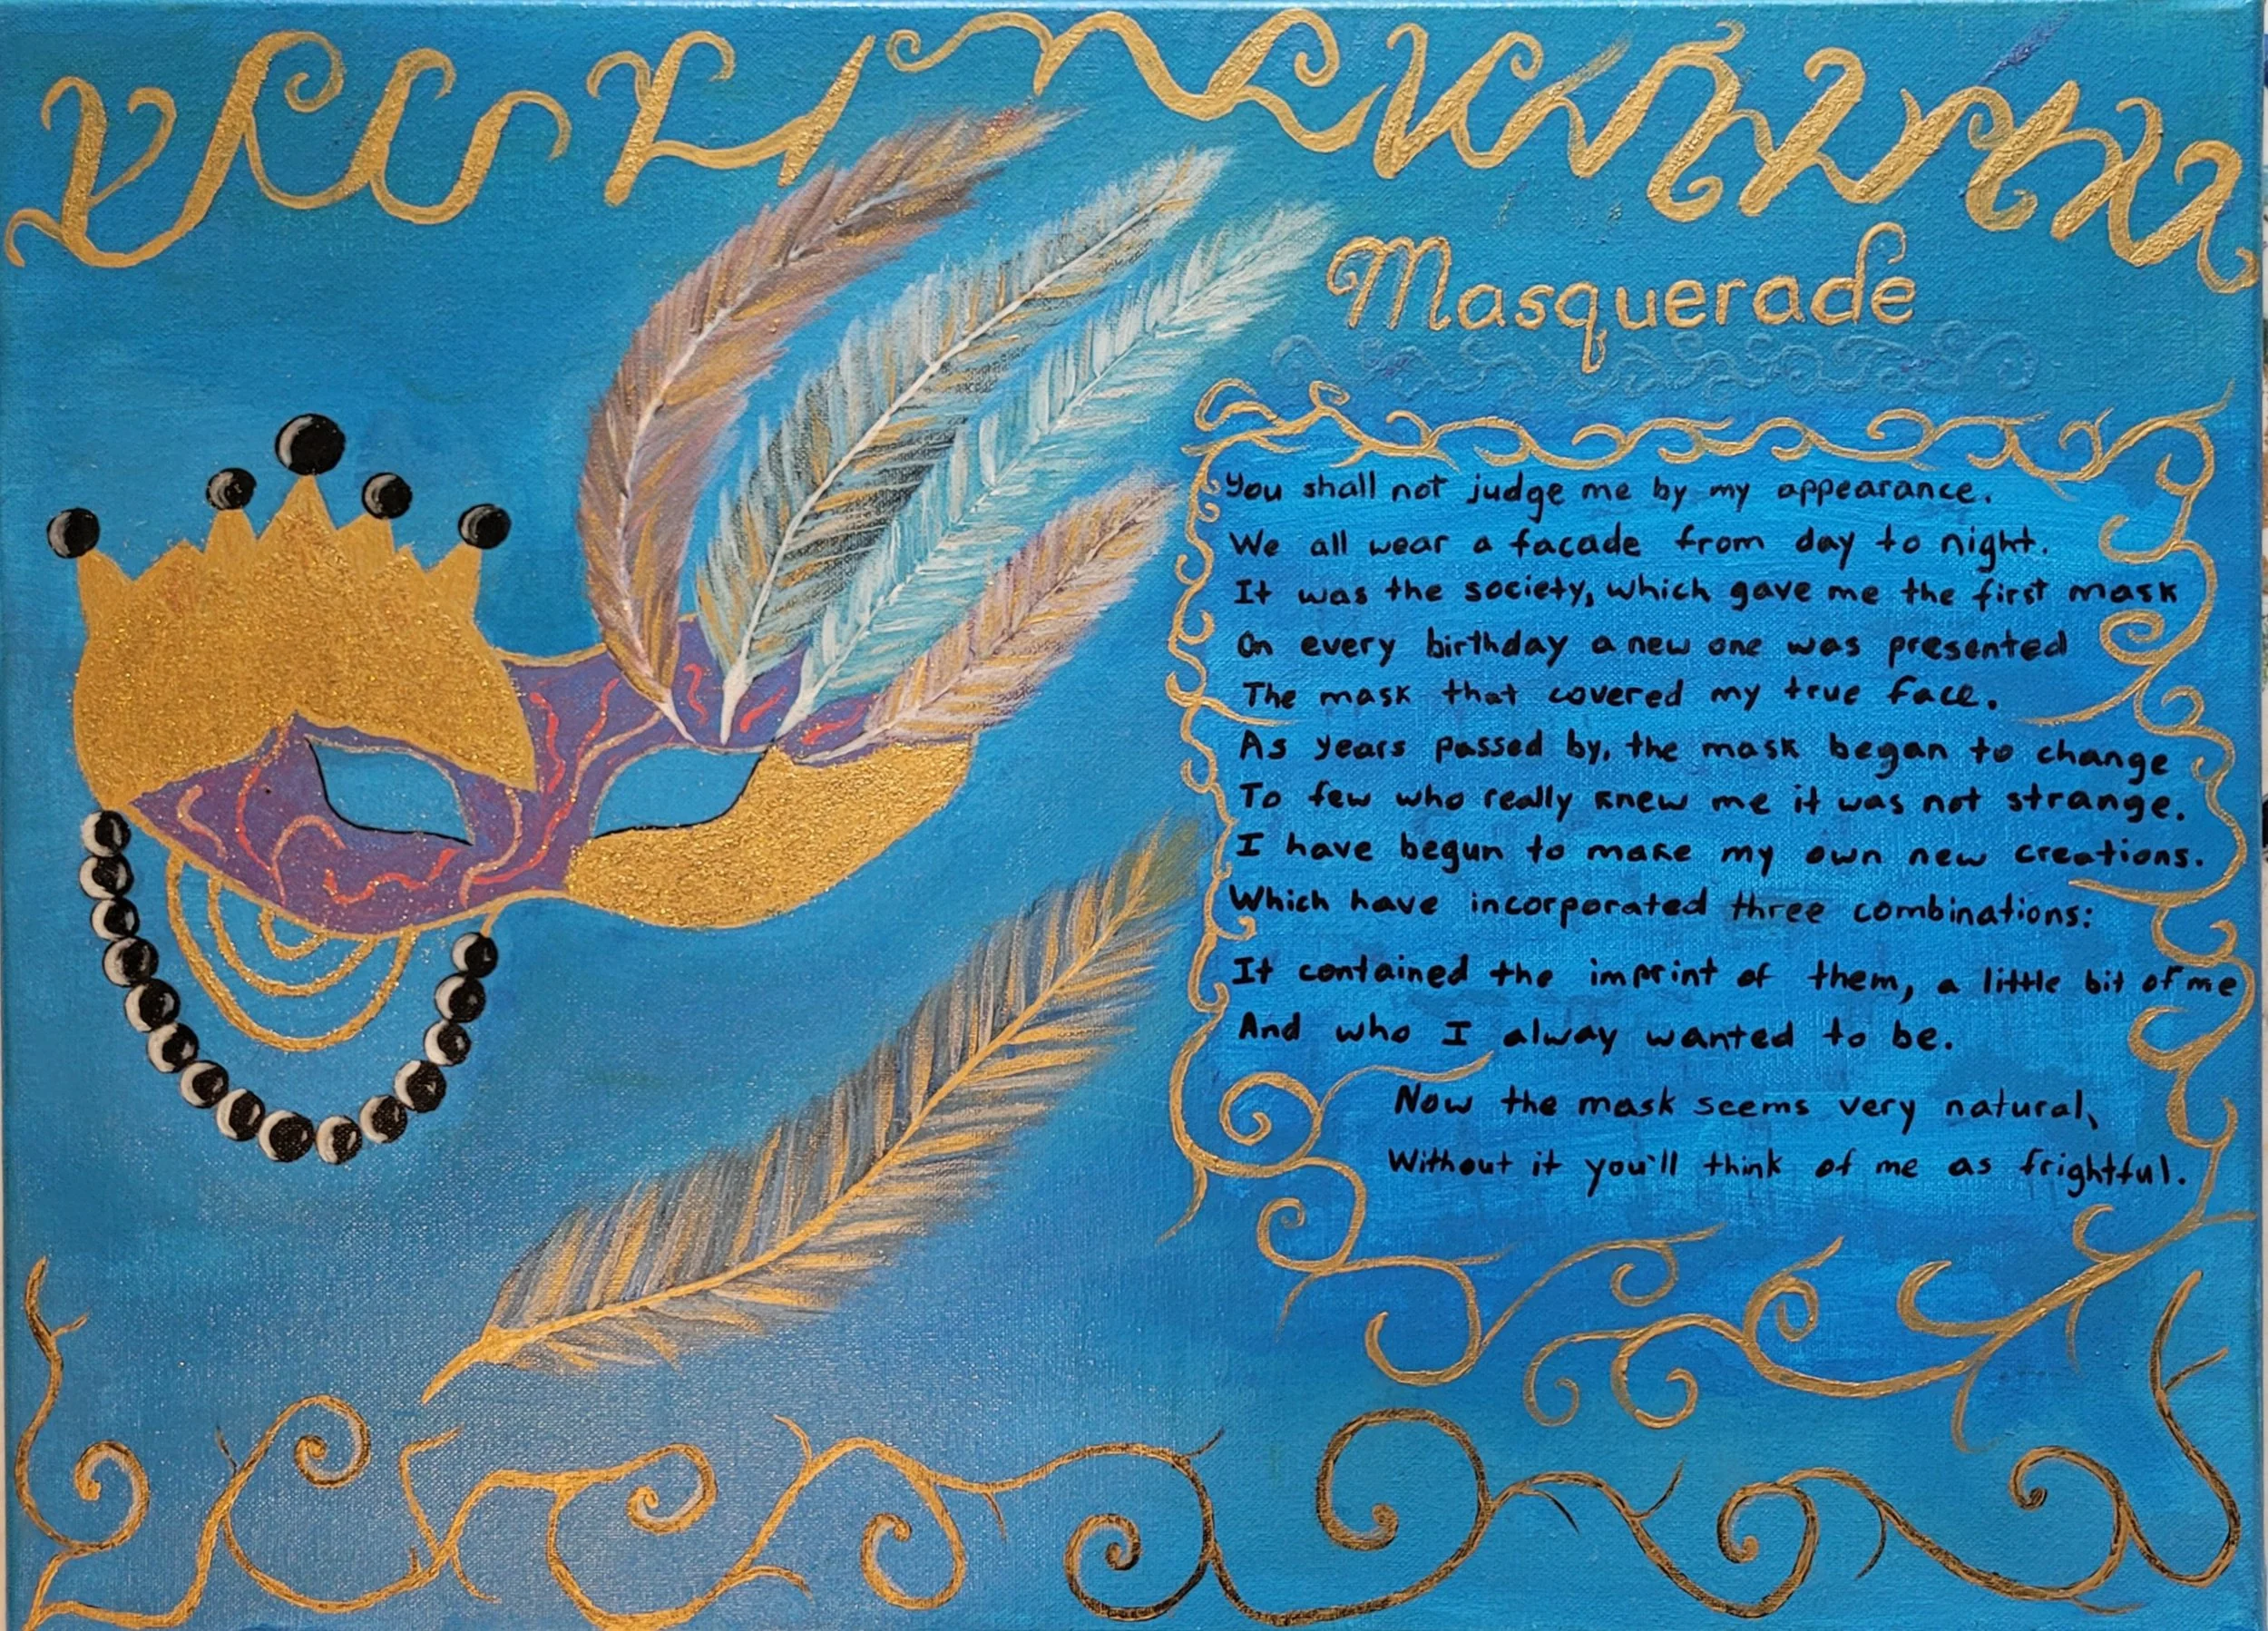 Masquerade
You shall not judge me by my appearance.
We all wear a facade from day to night.
It was the society, which gave me the first mask
On every birthday a new one was presented
The mask that covered my true face.
As years passed by, the mask began to change
To few who really knew me it was not strange.
I have begun to make my own new creations.
Which have incorporated three combinations:
It contained the imprint of them, a little bit of me
And who I alway wanted to be.
Now the mask seems very natural,
Without it you'll think of me as frightful.